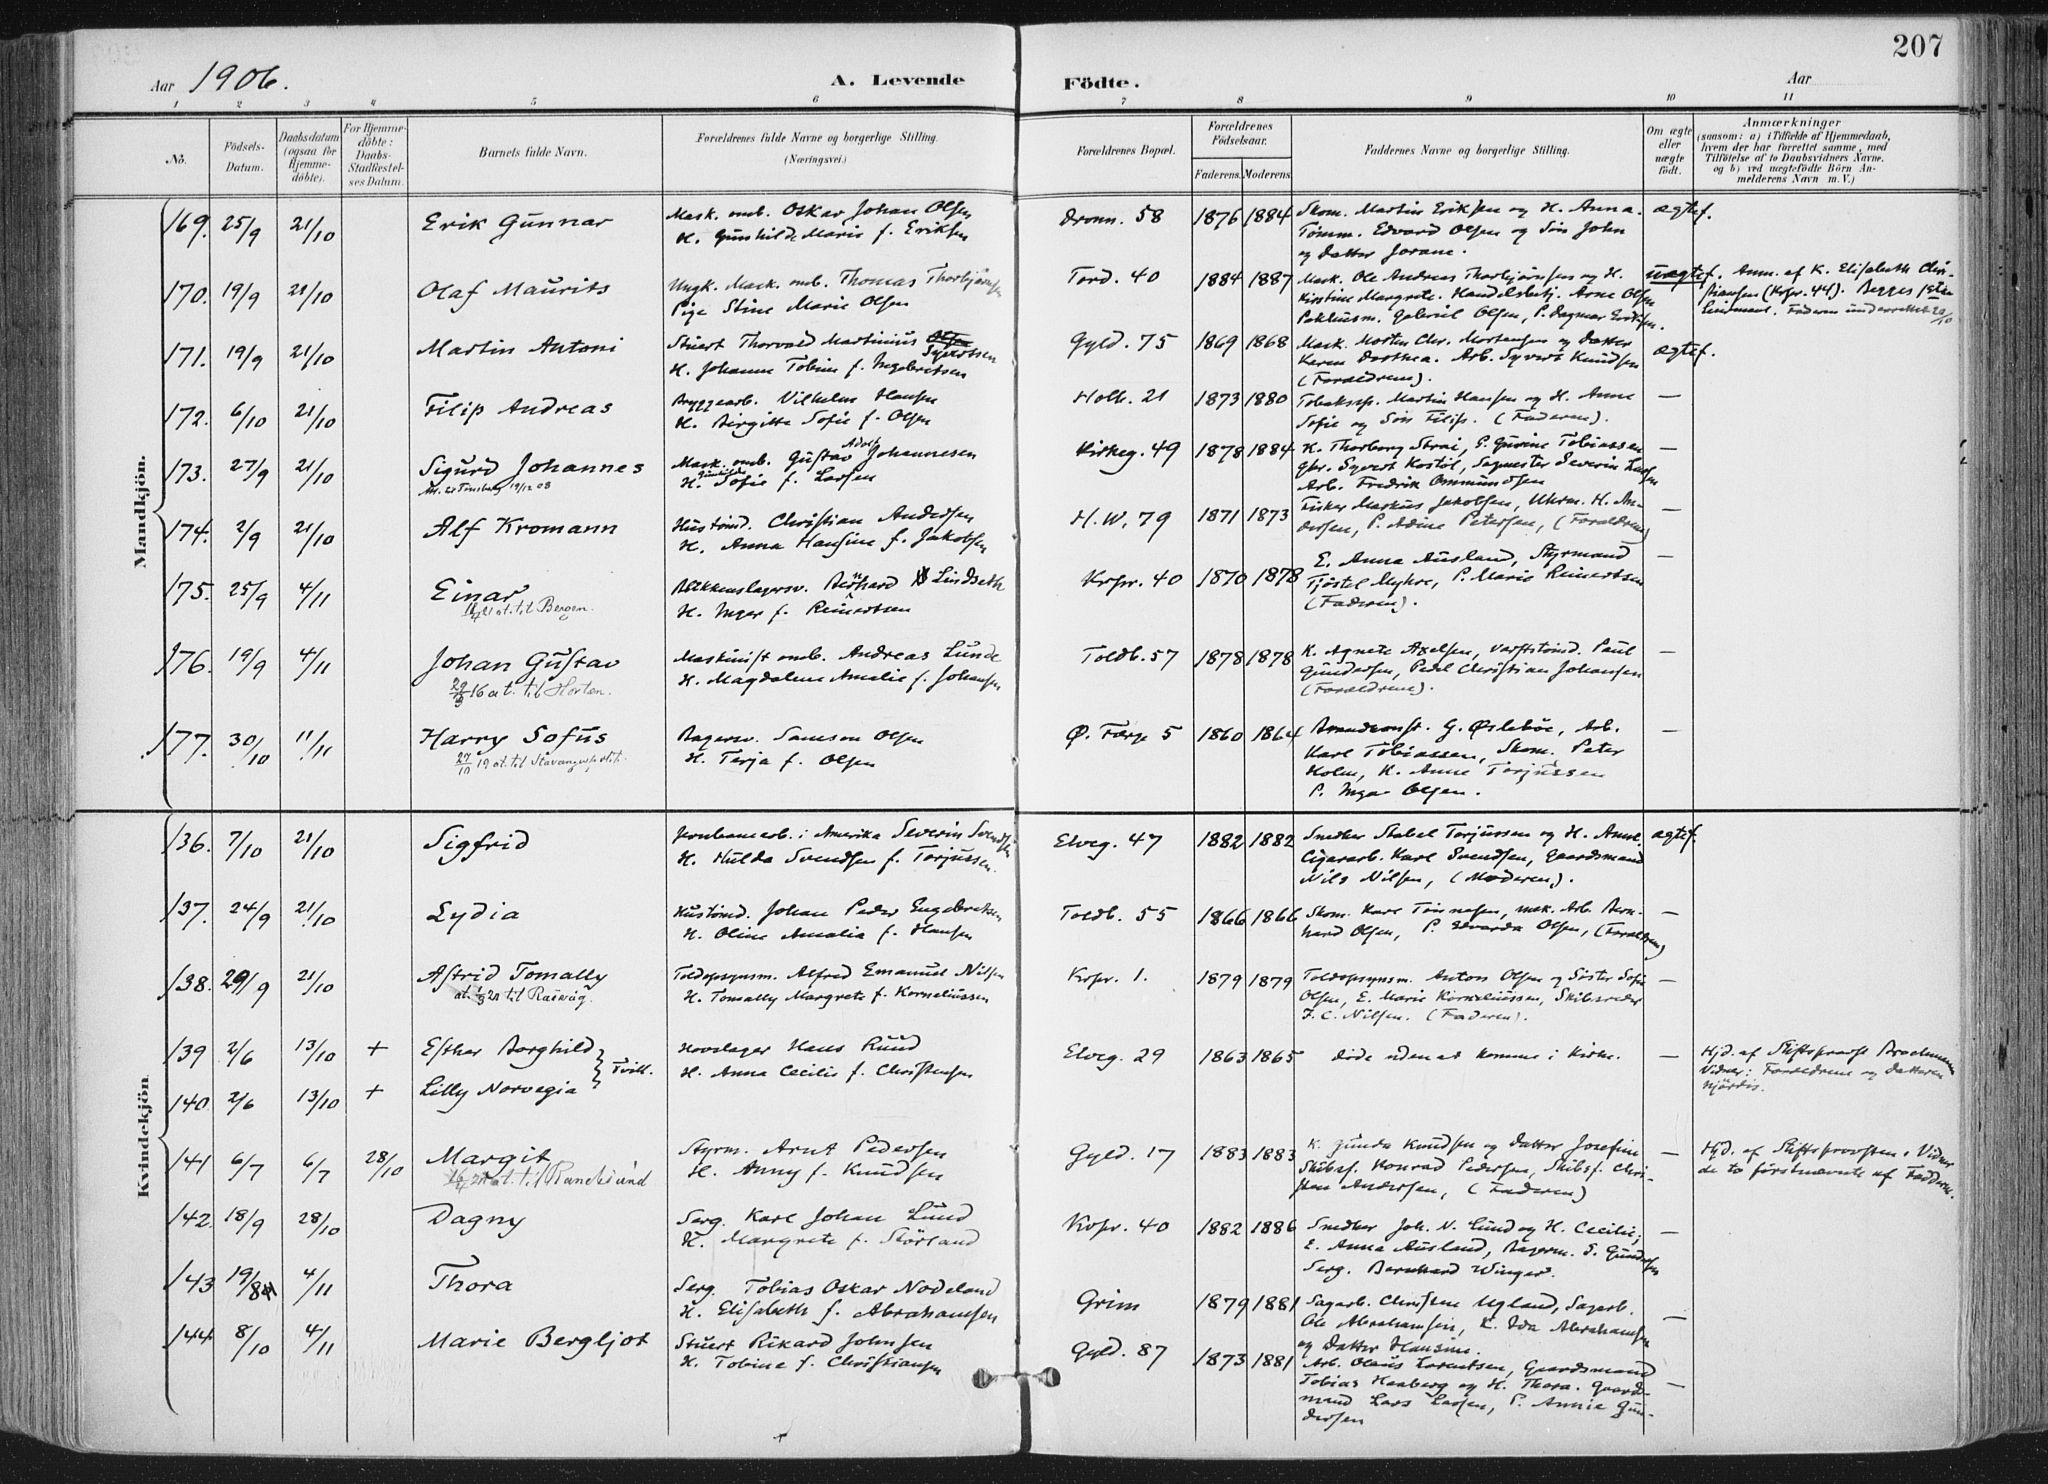 207
Aar 1906.
A. Levende Födte.
Aar
1 2 3 4 5 6 7 8 9 10 11
No.
Födsels-Datum.
Daabsdatum (ogsaa for Hjemme-döbte).
For Hjemme-döbte: Daabs-Stadfæstel-ses Datum.
Barnets fulde Navn.
Forældrenes fulde Navne og borgerlige Stilling. (Næringsvei.)
Forældrenes Bopæl.
Forældrenes Födselsaar.
Faderens. Moderens.
Faddernes Navne og borgerlige Stilling.
Om ægte eller uægte födt.
Anmærkninger
(saasom: a) i Tilfælde af Hjemmedaab,
hvem der har forrettet samme, med
Tilföielse af to Daabsvidners Navne.
og b) ved uægtefödte Börn An-
melderens Navn m. V.)
Mandkjön.
169. 25/9 21/10 Erik Gunnar
Mask. omb. Oskar Johan Olsen
H. Gunhilde Marie f. Eriksen
Dronn. 58 1876 1884
Skom. Martin Eriksen og H. Anna.
Tømm. Edvard Olsen og Søn John
og Datter Jorane.
ægtef.
170. 19/9 21/10 Olaf Maurits
Ungk. Mask. omb. Thomas Thorbjørnsen
Pige Stine Marie Olsen
Tord. 40 1884 1887
Mask. Ole Andreas Thorbjørnsen og H.
Kirstine Margrete. Handelsbetj. Arne Olsen
Pakhusm. Gabriel Olsen, P. Dagmar Eriksen.
uægtef.
Anm. af K. Elisabeth Chri-
stiansen (Krpr. 44). Begges 1ste
Leiermaal. Faderen underrettet 22/10
171. 19/9 21/10 Martin Antoni
Stuert Thorvald Martinius Olsen Syvertsen
H. Johanne Tobine f. Ingebretsen
Gyld. 75 1869 1868
Mask. Morten Chr. Mortensen og Datter
Karen Dorthea. Arb. Syvert Knudsen
(Forældrene).
ægtef.
172. 6/10 21/10 Filip Andreas
Bryggearb. Vilhelm Hansen
H. Birgitte Sofie f. Olsen
Holb. 21 1873 1880
Tobaksp. Martin Hansen og H. Anne
Sofie og Søn Filip. (Faderen).
—
173. 27/9 21/10 Sigurd Johannes
Mask. omb. Gustav Adolf Johannesen
H. Gunhilde Sofie f. Larsen
Kirkeg. 49 1878 1884
K. Thorborg Strai, P. Gurine Tobiassen
gbr. Syvert Kostøl, Sagmester Severin Larsen
Arb. Fredrik Ommundsen
—
174. 2/9 21/10 Alf Kromann
Hustømd. Christian Andersen
H. Anna Hansine f. Jakobsen
H.W. 79 1871 1873
Fisker Markus Jakobsen, Uhrm. H. An-
dersen, P. Adine Petersen, (Forældrene)
—
175. 25/9 4/11 Einar
14/4 21 at. til Bergen.
Blikkenslagersv. Berhard Lindseth
H. Inger f. Reinertsen
Krpr. 40 1870 1878
E. Anna Ausland, Styrmand
Tjøstel Myhre, P. Marie Reinertsen
(Faderen).
—
176. 19/9 4/11 Johan Gustav
29/3 16 at. til Horten.
Maskinist omb. Andreas Lunde
H. Magdalene Amalie f. Johansen
Toldb. 57 1878 1878
K. Agnete Axelsen, Varftstømd. Paul
Gundersen, Pedel Christian Johansen
(Forældrene).
—
177. 30/10 11/11 Harry Sofus
27/10 19 at. til Stavanger
Bagersv. Samson Olsen
H. Terja f. Olsen
Ø. Færge 5 1860 1864
Brandconst. G. Øslebøe, Arb.
Karl Tobiassen, Skom. Peter
Holm, K. Anne Torjussen
P. Inga Olsen.
—
Kvindekjön
136. 7/10 21/10 Sigfrid
Jernbanearb. i Amerika Severin Svendsen
H. Hulda Svendsen f. Torjussen.
Elveg. 47 1882 1882
Snedker Stabel Torjussen og H. Anne.
Cigararb. Karl Svendsen, Gaardsmand
Nils Nilsen, (Moderen).
ægtef.
137. 24/9 21/10 Lydia
Hustømd. Johan Peder Engebretsen
H. Oline Amalia f. Hansen
Toldb. 55 1866 1866
Skom. Karl Tønnesen, mek. Arb. Bern-
hard Olsen, P. Edvarda Olsen, (Forældrene)
—
138. 29/9 21/10 Astrid Tomally
Toldopsynsm. Alfred Emanuel Nilsen
H. Tomally Margrete f. Korneliussen
Krpr. 1. 1879 1879
Toldopsynsm. Anton Olsen og Søster Sofie
Olsen, E. Marie Korneliussen, Skibsreder
F. C. Nilsen. (Faderen).
—
139 2/6 13/10 + Esther Borghild
Tvill.
Hovslager Hans Ruud
H. Anna Cecilie f. Christensen
Elveg. 29 1863 1865
døde uden at komme i Kirke.
—
Hjd. af Stiftsprovst
Vidner: Forældrene og Datteren
Hjørdis.
140. 2/6 13/10 + Lilly Norvegia
141 6/7 6/7 28/10 Margit
at. til Randesund
Styrm. Arnt Pedersen
H. Anny f. Knudsen
Gyld. 17 1883 1883
K. Gunda Knudsen og Datter Josefine
Skibsf. Konrad Pedersen, Skibsf. Chri-
sten Andersen, (Faderen)
—
Hjd. af Stiftsprovsten, Vidner
de to førstnævnte af Fadderne.
142. 18/9 28/10 Dagny
Serg. Karl Johan Lund
H. Margrete f. Störland
Krpr. 40 1882 1886
Snedker Joh. N. Lund og H. Cecilie;
E. Anna Ausland, Bagerm. S. Gundersen
Serg. Bernhard Winger.
—
143 19/8 4/11 Thora
Serg. Tobias Oskar Nodeland
H. Elisabeth f. Abrahamsen
Grim 1879 1881
Sagarb. Christen Ugland, Sagarb.
Ole Abrahamsen, K. Ida Abrahamsen
og Datter Hansine.
—
144. 8/10 4/11 Marie Bergljot
Stuert Rikard Johnsen
H. Tobine f. Christiansen
Gyld. 87 1873 1881
Arb. Olaus Lorentsen, Gaardsmand
Tobias Haaberg og H. Thora. Gaards-
mand Lars Larsen, P. Annie Gun-
dersen
—